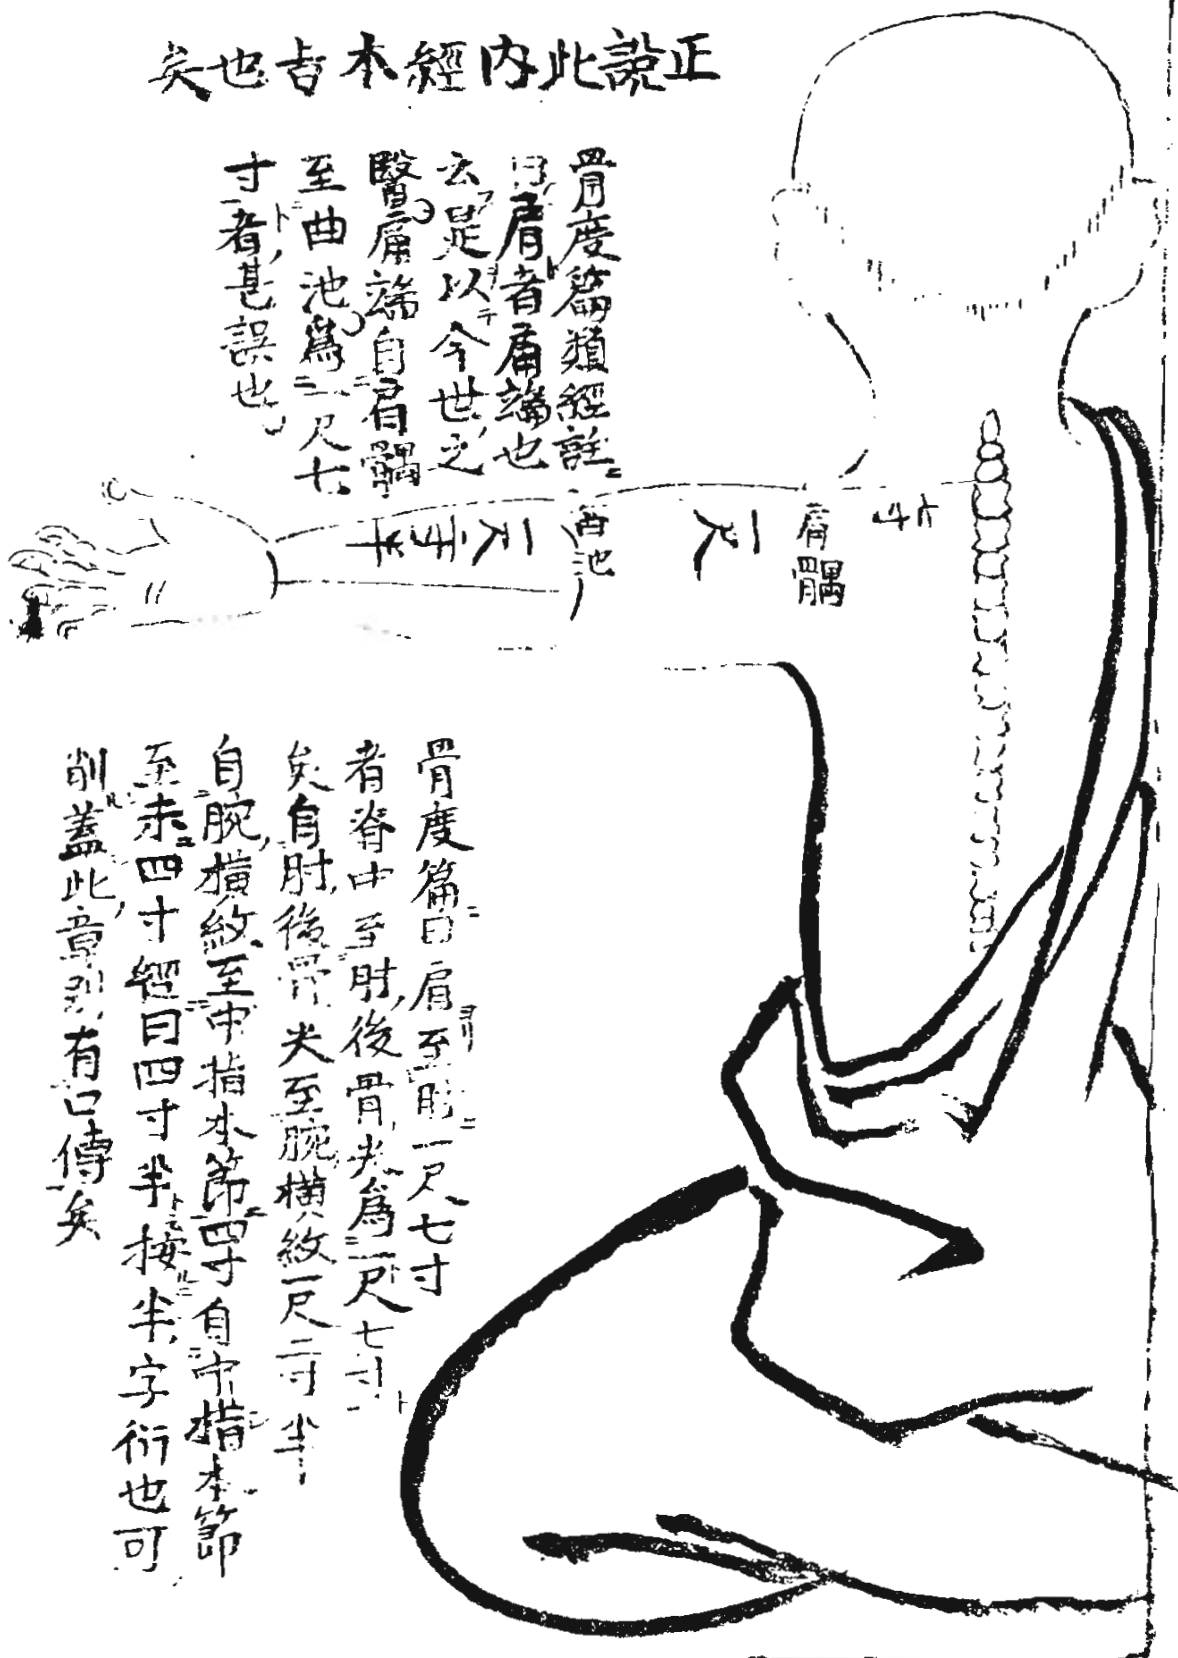 正說此内經本旨也矣
骨度篇類經註
曰肩者肩端也
云是以今世之
醫肩端自肩髃
至曲池爲一尺七
寸者甚誤也
七寸
肩髃
一尺
曲池
一尺二寸半
骨度篇曰肩至肘一尺七寸
者脊中至肘後骨尖爲一尺七寸
矣自肘後骨尖至腕橫紋一尺二寸半
自腕橫紋至中指本節四寸自中指本節
至末四寸經曰四寸半按半字衍也可
削蓋此章別有口傳矣